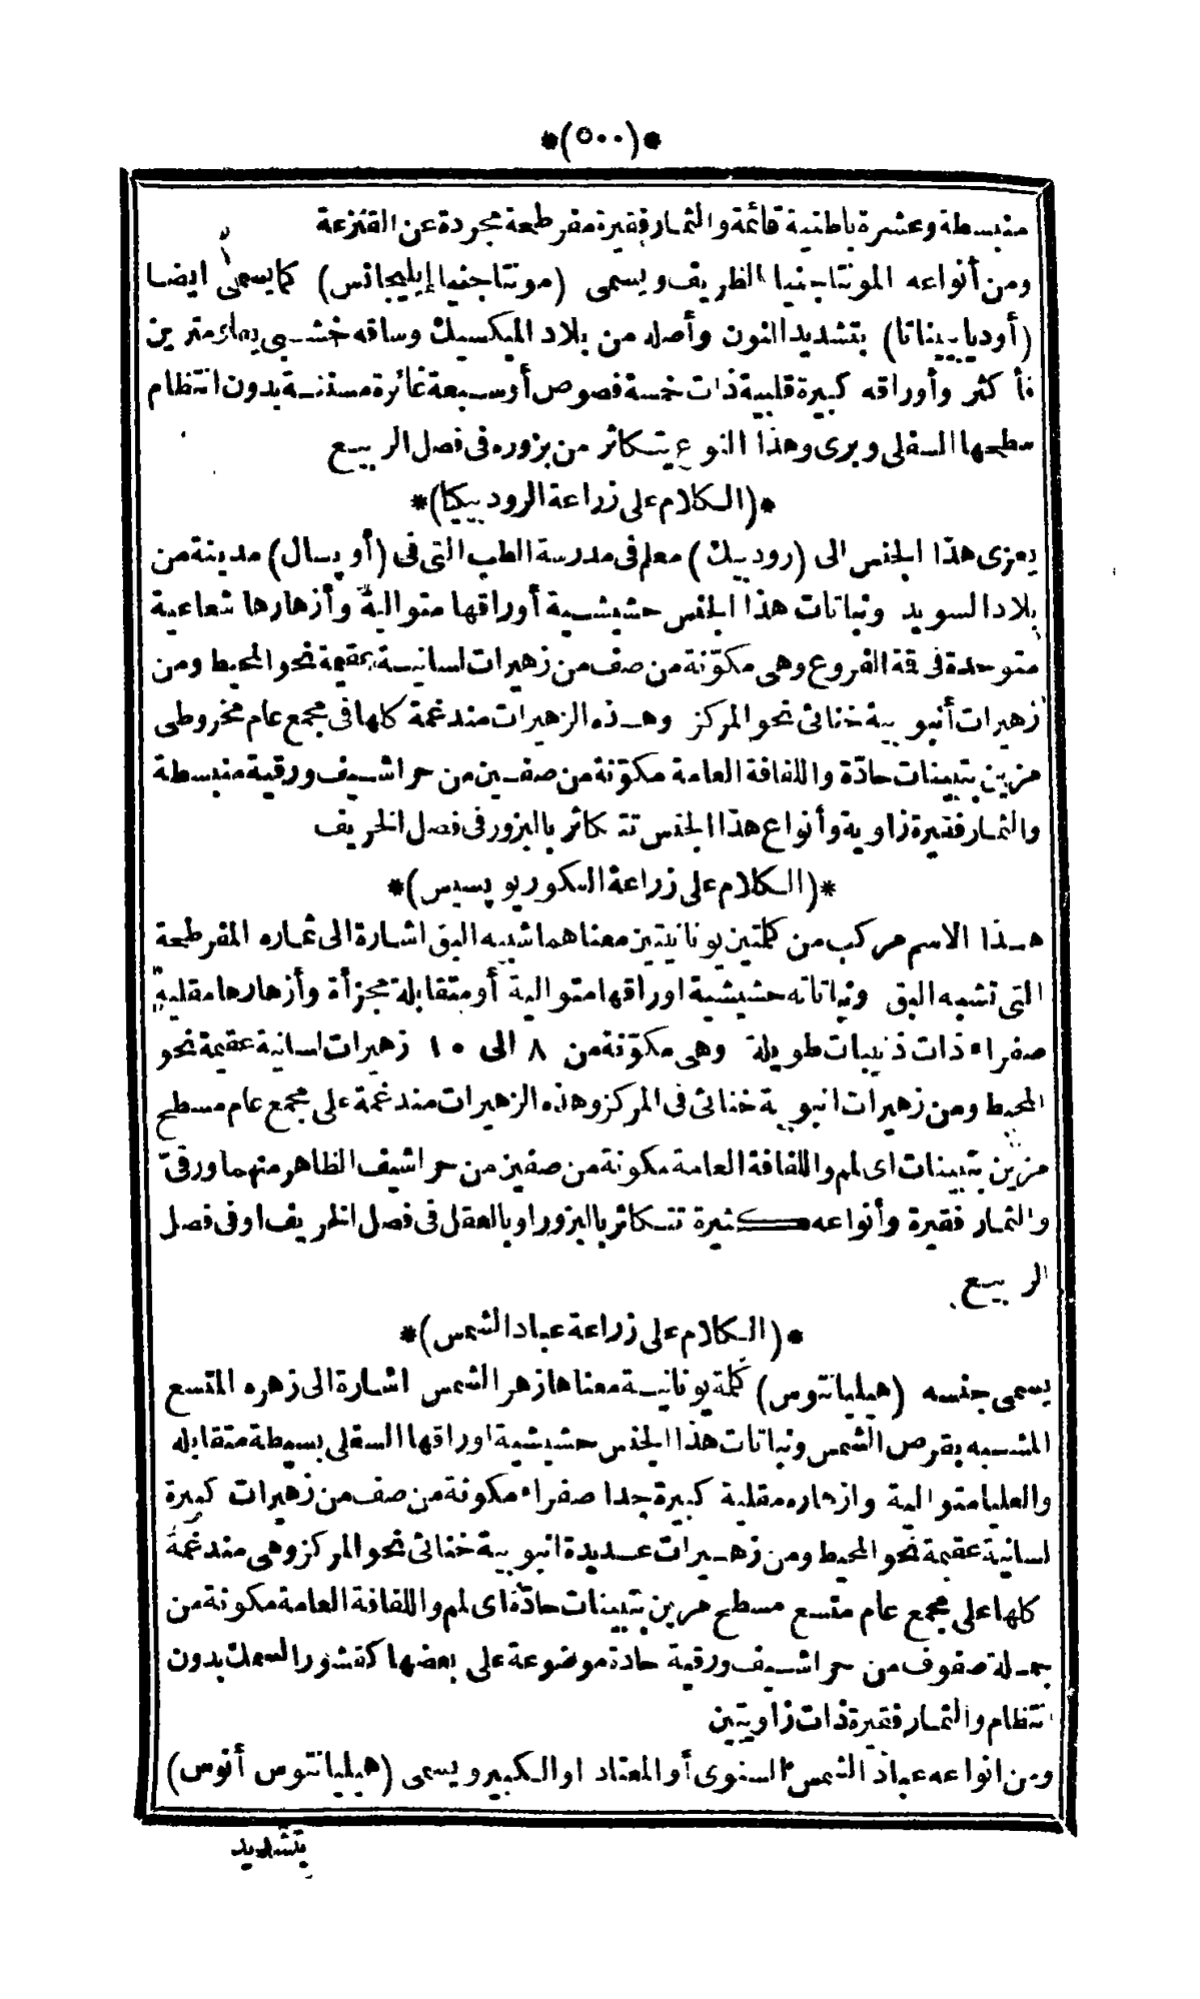 *(٥٠٠)*
منبسطة وعشرة باطنية قائمة والثمار فقيرة مفرطحة مجردة عن القنزعة
ومن أنواعه المونتاجنيا الظريف ويسمى (مونتاجنيا إيليجانس) كما يسمى ايضا
(أوديا بيناتا) بتشديد النون وأصله من بلاد الميكسيك وساقه خشبى يعلو مترين
فأكثر وأوراقه كبيرة قلبية ذات خمسة فصوص أو سبعة غائرة مسننة بدون انتظام
سطحها السفلى وبرى وهذا النوع يتكاثر من بزوره فى فصل الربيع
*(الكلام على زراعة الرودبيكا)*
يعزى هذا الجنس الى (رودبيك) معلم فى مدرسة الطب التى فى (أوپسال) مدينة من
بلاد السويد ونباتات هذا الجنس حشيشية أوراقها متوالية وأزهارها شعاعية
متوحدة فى قمة الفروع وهى مكوّنة من صف من زهيرات لسانية عقيمة نحو المحيط ومن
زهيرات أنبوبية خناثى نحو المركز وهذه الزهيرات مندغمة كلها فى مجمع عام مخروطى
مزين بتبينات حادّة واللفافة العامة مكوّنة من صفين من حراشيف ورقية منبسطة
والثمار فقيرة زاوية وأنواع هذا الجنس تتكاثر بالبزور فى فصل الخريف
*(الكلام على زراعة الكوريوپسيس)*
هذا الاسم مركب من كلمتين يونانيتين معناهما شبيه البق اشارة الى ثماره المفرطحة
التى تشبه البق ونباتاته حشيشية اوراقها متوالية أو متقابلة مجزأة وأزهارها مقلية
صفراء ذات ذنيبات طويلة وهى مكوّنة من ٨ الى ١٠ زهيرات لسانية عقيمة نحو
المحيط ومن زهيرات انبوبية خناثى فى المركز وهذه الزهيرات مندغمة على مجمع عام مسطح
مزين بتبينات اى لم واللفافة العامة مكونة من صفين من حراشيف الظاهر منهما ورقىّ
والثمار فقيرة وأنواعه كثيرة تتكاثر بالبزور او بالعقل فى فصل الخريف او فى فصل
الربيع
*(الكلام على زراعة عباد الشمس)*
يسمى جنسه (هيليانتوس) كلمة يونانية معناها زهر الشمس اشارة الى زهره المتسع
المشبه بقرص الشمس ونباتات هذا الجنس حشيشية اوراقها السفلى بسيطة متقابله
والعليا متوالية وازهاره مقلية كبيرة جدا صفراء مكونة من صف من زهيرات كبيرة
لسانية عقيمة نحو المحيط ومن زهيرات عديدة انبوبية خناثى نحو المركز وهى مندغمة
كلها على مجمع عام متسع مسطح مزين بتبينات حادّة اى لم واللفافة العامة مكونة من
جملة صفوف من حراشيف ورقية حادة موضوعة على بعضها كقشور السمك بدون
انتظام والثمار فقيرة ذات زاويتين
ومن انواعه عباد الشمس السنوى أو المعتاد او الكبير ويسمى (هيليانتوس أنوس)
بتشديد